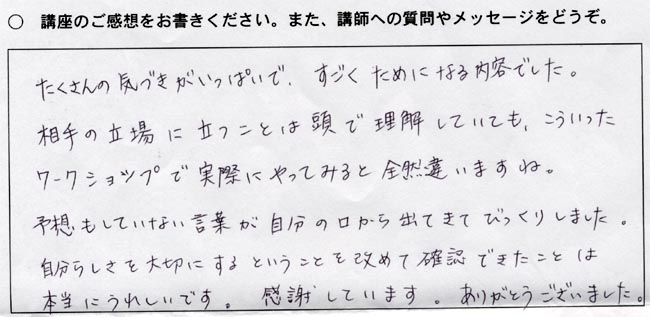 ○ 講座のご感想をお書きください。また、講師への質問やメッセージをどうぞ。
たくさんの気づきがいっぱいで、すごくためになる内容でした。
相手の立場に立つことは頭で理解していても、こういった
ワークショップで実際にやってみると全然違いますね。
予想もしていない言葉が自分の口から出てきてびっくりしました。
自分らしさを大切にするということを改めて確認できたことは
本当にうれしいです。感謝しています。ありがとうございました。